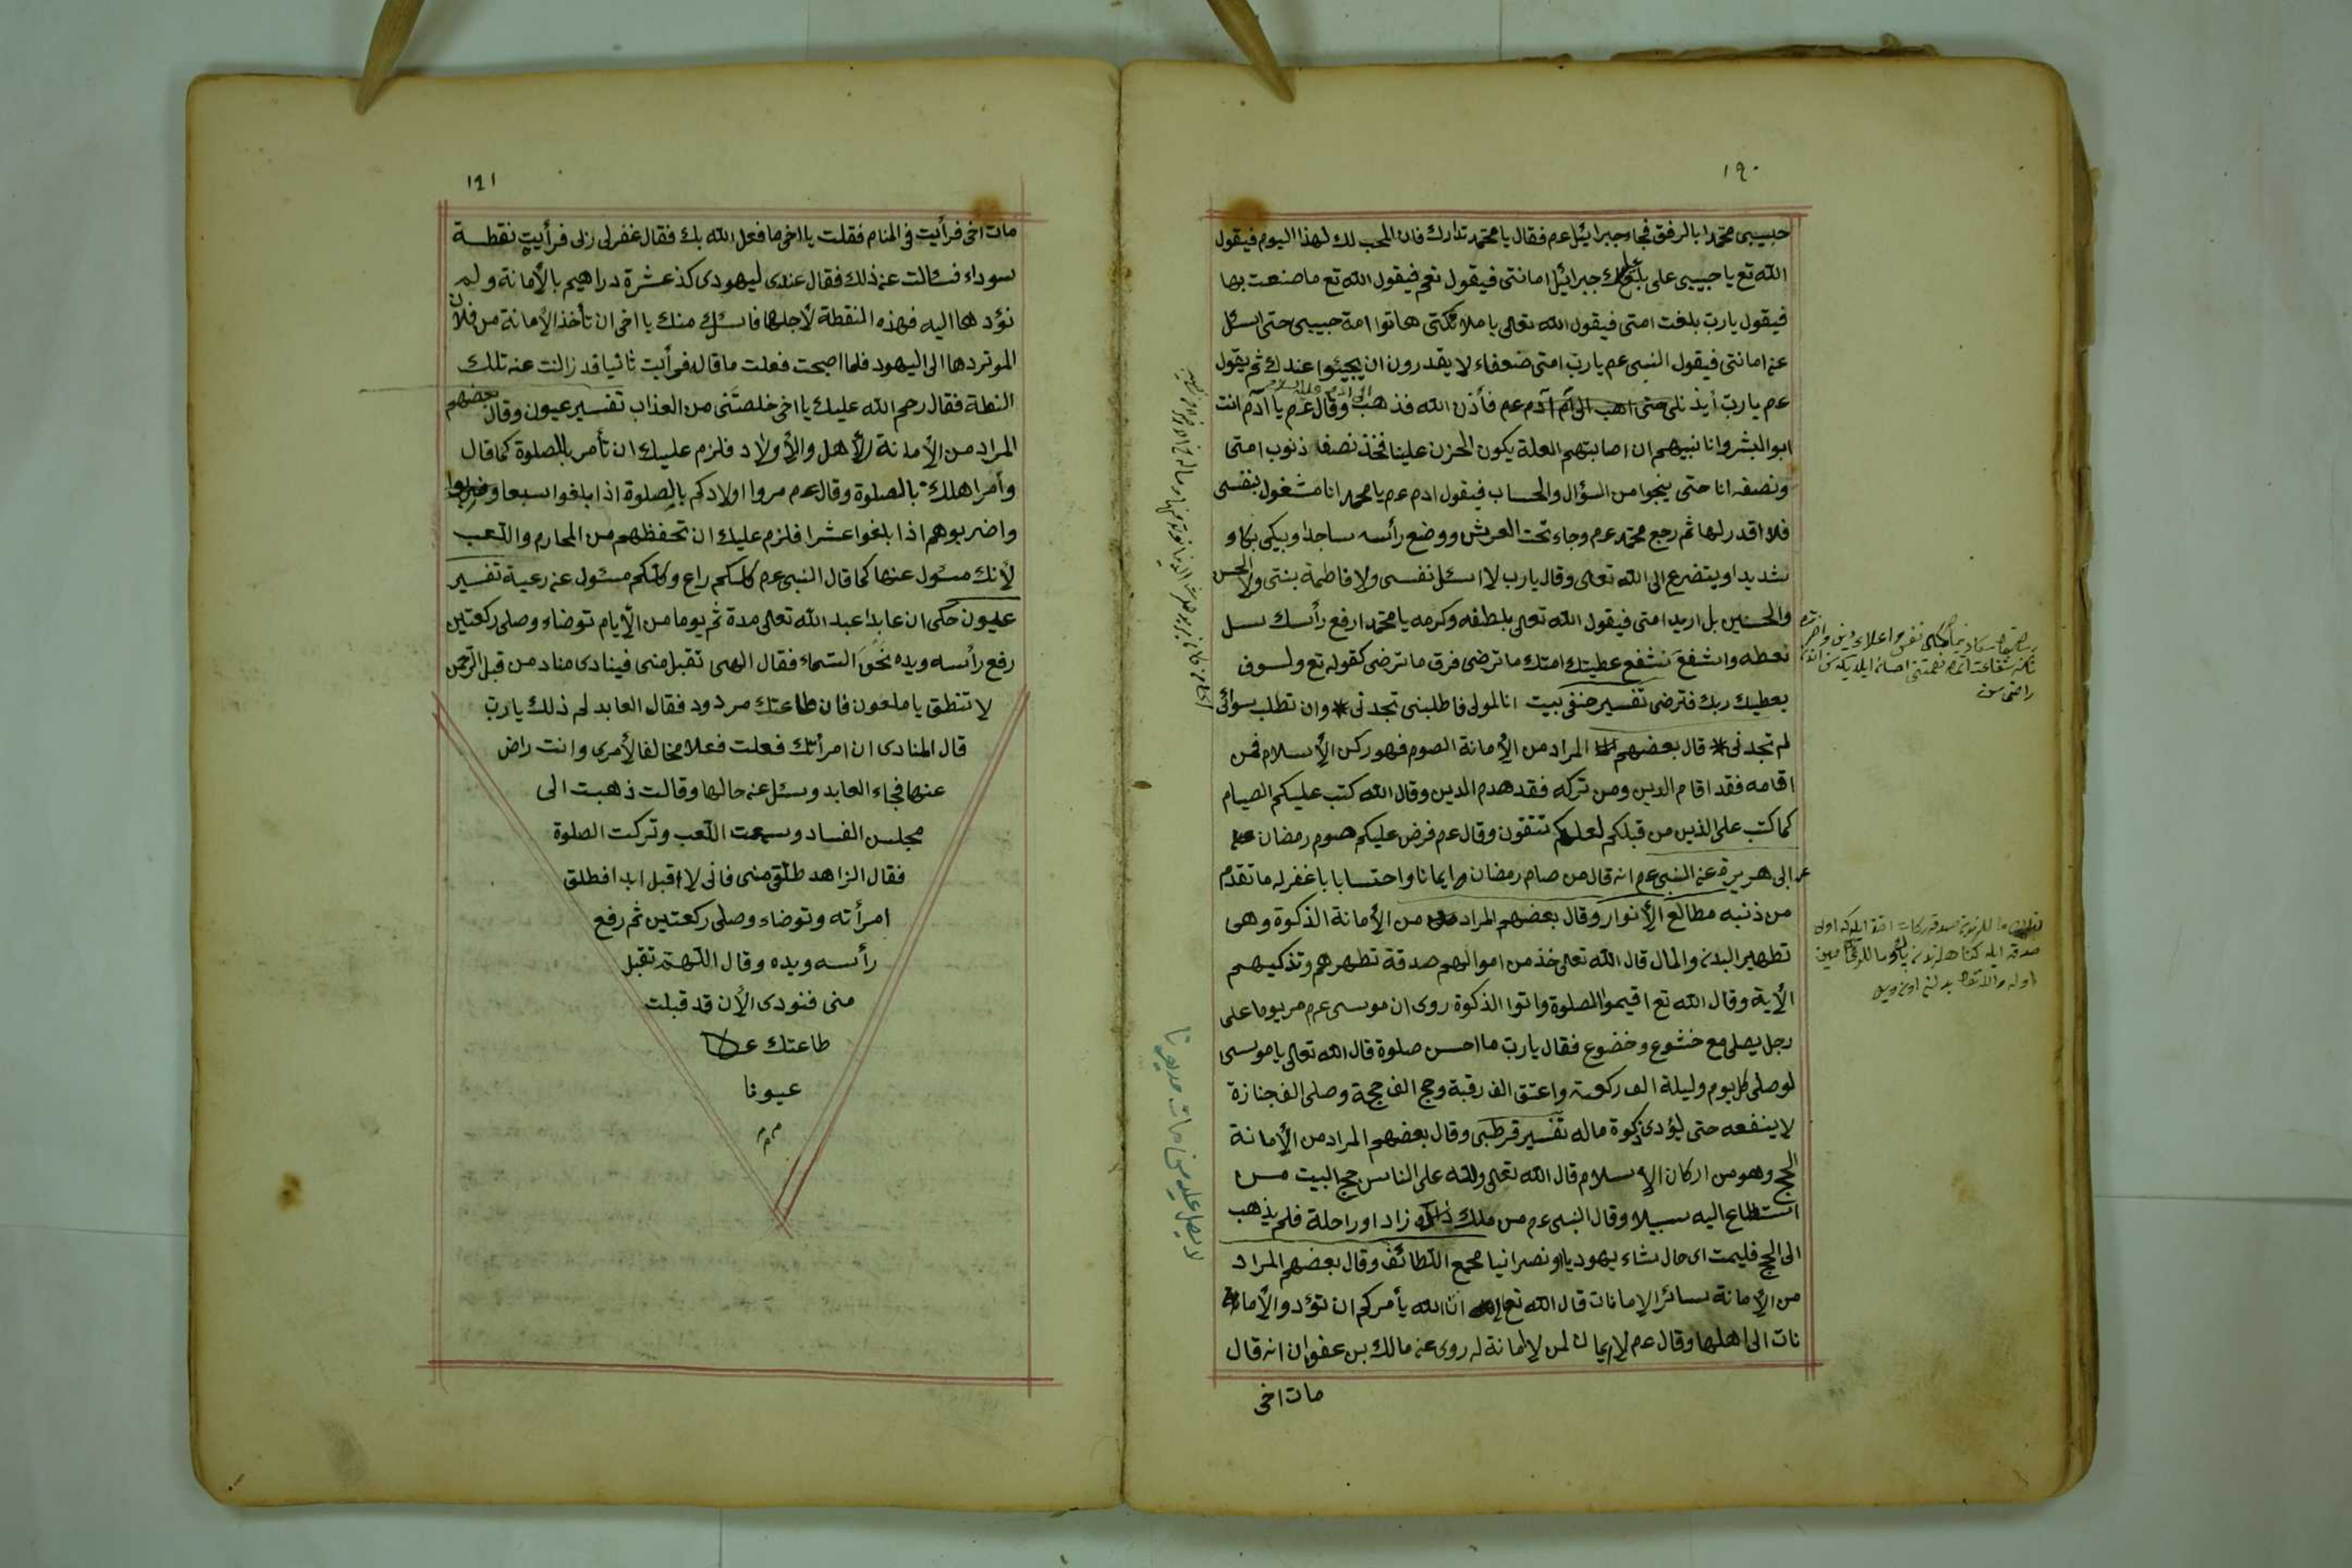 ١٩٠
حبيبى محمدا بالرفق فجاء جبرائيل عم فقال يا محمد تدارك فان المحب لك لهذا اليوم فيقول
الله تع يا حبيبى على بلغك جبرائيل امانتى فيقول نعم فيقول الله تع ما صنعت بها
فيقول يارب بلغت امتى فيقول الله تعالى يا ملائكتى هاتوا امة حبيبى حتى اسئل
عن امانتى فيقول النبى عم يارب امتى ضعفاء لا يقدرون ان يجيئوا عندك ثم يقول
عم يارب أيذنلى حتى اهب الى آدم عم فأذن الله فذهب وقال عم يا آدم انت
ابو البشر وانا نبيهم ان اصابتهم العلة يكون الحزن علينا فخذ نصفا ذنوب امتى
ونصفه انا حتى ينجوا من السؤال والحساب فيقول ادم عم يا محمد انا مشغول بنفسى
فلا اقدر لها ثم رجع محمد عم وجاء تحت العرش ووضع رأسه ساجدا ويبكى بكاء
شديدا ويتضرع الى الله تعالى وقال يارب لا اسئل نفسى ولا فاطمة بنتى ولا الحسن
والحسين بل اريد امتى فيقول الله تعالى بلطفه وكرمه يا محمد ارفع رأسك سل
تعطه واشفع تشفع عطيتك امتك ما ترضى فرق ما ترضى كقوله تع ولسوف
يعطيك ربك فترضى تفسير حنفى بيت انا المولى فاطلبنى تجدنى * وان تطلب سوائى
لم تجدنى * قال بعضهم المراد من الأمانة الصوم فهو ركن الأسلام فمن
اقامه فقد اقام الدين ومن تركه فقد هدم الدين وقال الله كتب عليكم الصيام
كما كتب على الذين من قبلكم لعلكم تتقون وقال عم فرض عليكم صوم رمضان
عن ابى هريرة عن النبى عم انه قال من صام رمضان ايمانا واحتسابا غفر له ما تقدم
من ذنبه مطالع الأنوار وقال بعضهم المراد من الأمانة الذكوة وهى
تطهير البدن والمال قال الله تعالى خذ من اموالهم صدقة تطهرهم وتذكيهم
الأية وقال الله تع اقيموا الصلوة واتوا الذكوة روى ان موسى عم مر يوما على
رجل يصلى مع خشوع وخضوع فقال يارب ما احسن صلوة قال الله تعالى يا موسى
لو صلى كل يوم وليلة الف ركعة واعتق الف رقبة وحج الف حجة وصلى الف جنازة
لا ينفعه حتى يؤدى ذكوة ماله تفسير قرطبى وقال بعضهم المراد من الأمانة
الحج وهو من اركان الاسلام قال الله تعالى ولله على الناس حج البيت من
استطاع اليه سبيلا وقال النبى عم من ملك زاد او راحلة فلم يذهب
الى الحج فليمت اى حال شاء يهوديا او نصرانيا مجمع اللطائف وقال بعضهم المراد
من الأمانة سائر الامانات قال الله تع ان الله يأمركم ان تؤدو الأما
نات الى اهلها وقال عم لا ايمان لمن لا امانة له روى عن مالك بن عفوان انه قال
مات اخى
١٩١
مات اخى فرأيت فى المنام فقلت يا اخى ما فعل الله بك فقال غفر لى ربى فرأيت نقطة
سوداء فسئالت عن ذلك فقال عندى ليهودى كذ عشرة دراهيم بالأمانة ولم
نؤدها اليه فهذه النقطة لأجلها فاسئلك منك يا اخى ان تأخذ الأمانة من فلان
الموتردها الى اليهود فلما اصبحت فعلت ما قاله فرأيت ثانيا قد زالت عنه تلك
النطة فقال رحم الله عليك يا اخى خلصتنى من العذاب تفسير عيون وقال بعضهم
المراد من الأمانة الأهل والأولاد فلزم عليك ان تأمر بالصلوة كما قال
وأمر اهلك بالصلوة وقال عم مروا اولادكم بالصلوة اذا بلغوا سبعا
واضربوهم اذا بلغوا عشرا فلزم عليك ان تحفظهم من المحارم واللعب
لأنك مسئول عنها كما قال النبى عم كلكم راع وكلكم مسئول عن رعية تفسير
عيون حكى ان عابدا عبد الله تعالى مدة ثم يوما من الأيام توضاء وصلى ركعتين
رفع رأسه ويده نحو السماء فقال الهى تقبل منى فينادى مناد من قبل الرحمن
لا تنطق يا ملعون فان طاعتك مردود فقال العابد لم ذلك يارب
قال المنادى ان امرأتك فعلت فعلا مخالفا لأمرى وانت راض
عنها فجاء العابد وسئل عن حالها وقالت ذهبت الى
مجلس الفساد وسمعت اللعب وتركت الصلوة
فقال الزاهد طلقى منى فانى لا اقبل ابدا فطلق
امرأته وتوضاء وصلى ركعتين ثم رفع
رأسه ويده وقال اللهم تقبل
منى فنودى الأن قد قبلت
طاعتك
عيونا